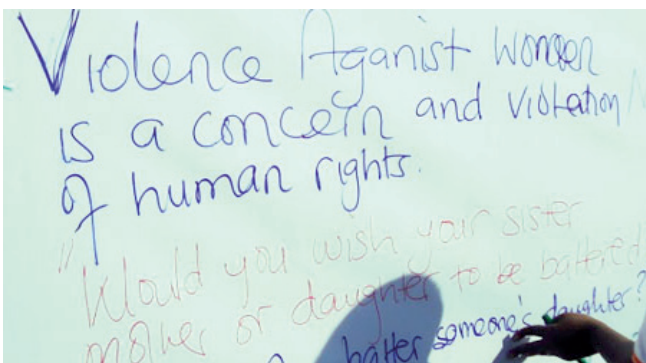 Violence Aganist women
is a concern and violation
of human rights.
"Would you wish your sister
mother or daughter to be battered
batter someone's daughter?